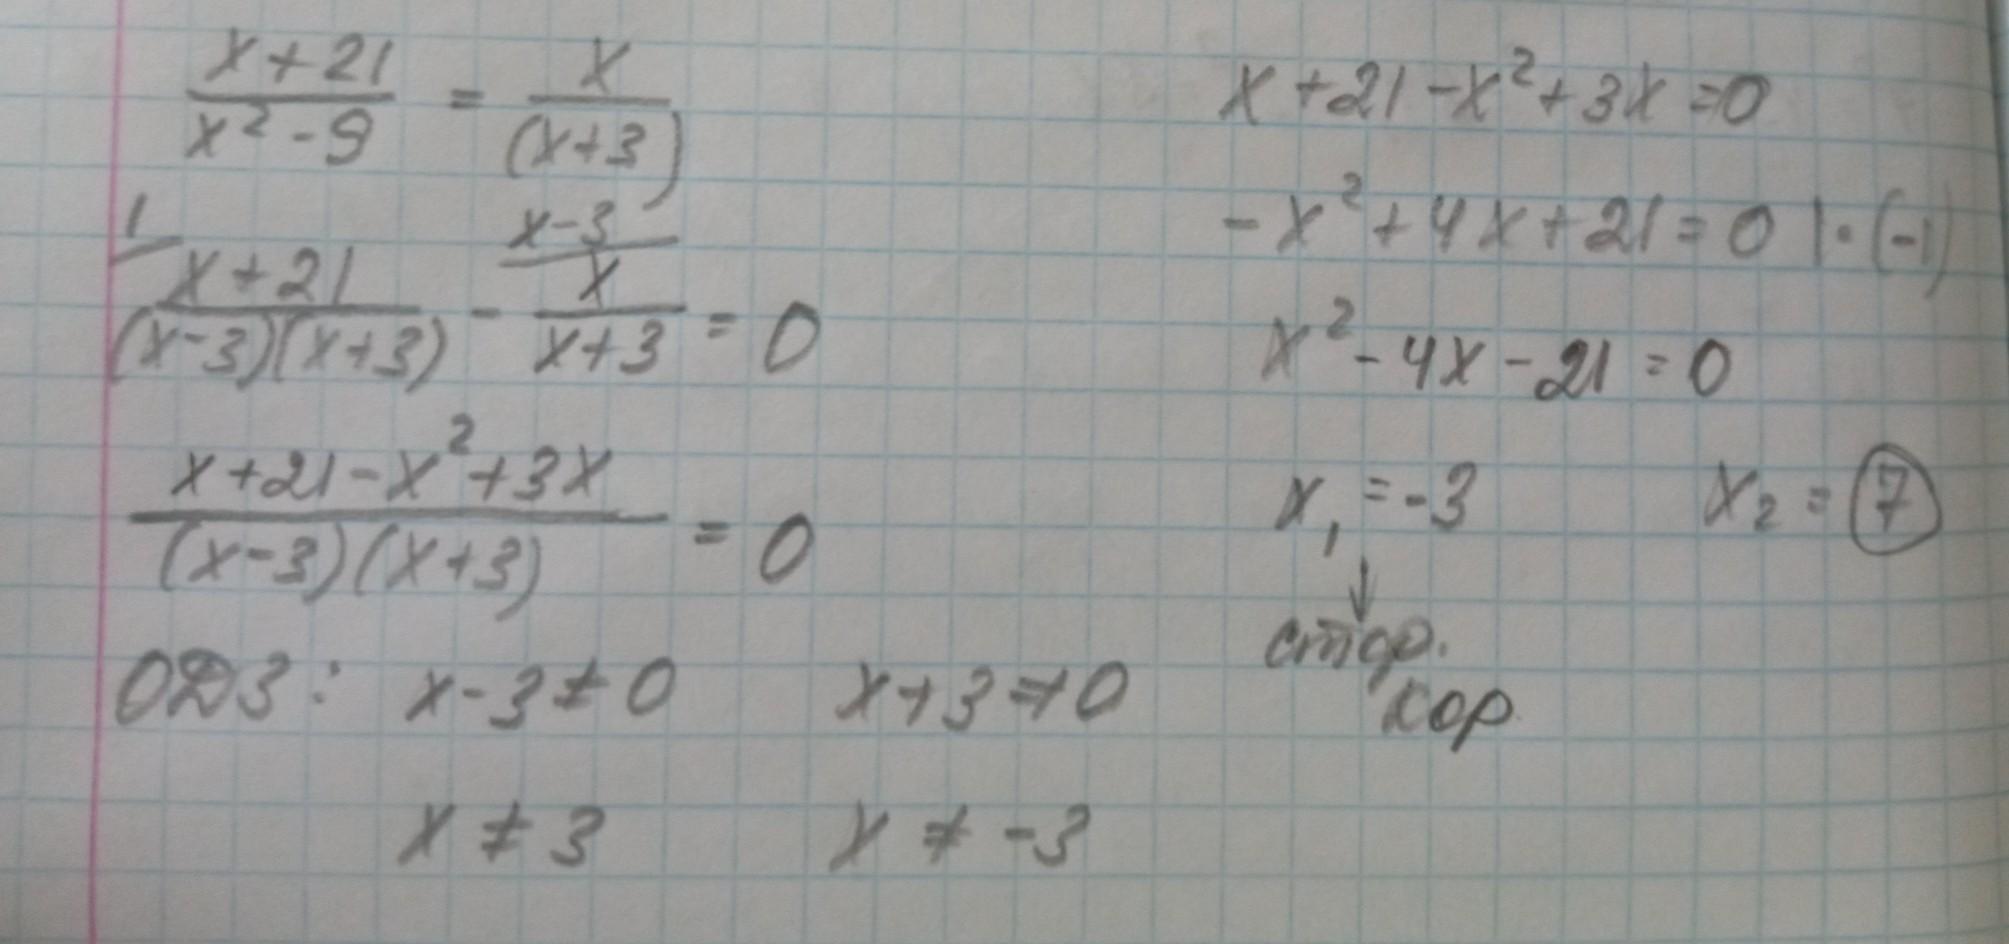 x+21 / x²-9 = x / (x+3)
1/ x-3/
x+21 / (x-3)(x+3) - x / x+3 = 0
x+21-x²+3x / (x-3)(x+3) = 0
ОДЗ: x-3≠0 x+3≠0
x≠3 x≠-3
x+21-x²+3x=0
-x²+4x+21=0 |·(-1)
x²-4x-21=0
x₁=-3 x₂=7
↓
стор.
кор